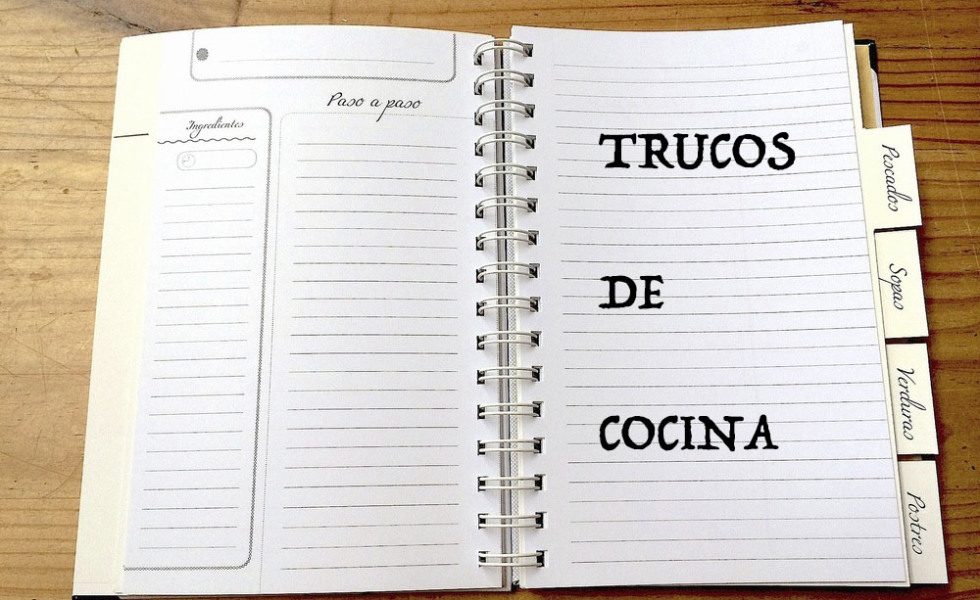 Paso a paso
Ingredientes
TRUCOS
DE
COCINA
Pescados
Sopas
Verduras
Postres